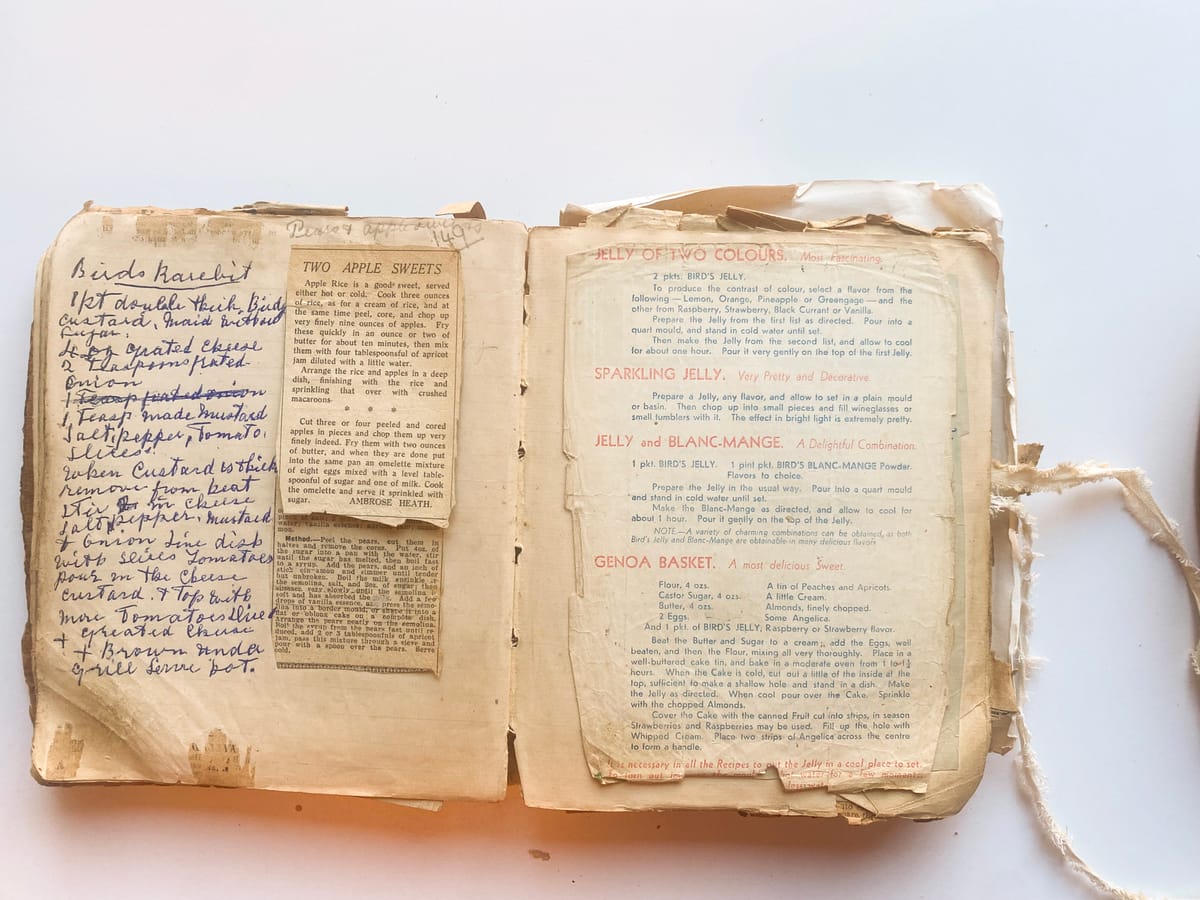 Birds Rarebit
1 pt double thick Birds
custard, maid without
sugar.
4 oz grated cheese
2 Teaspoons grated
onion
1 Teasp made mustard
Salt, pepper, Tomato
slices.
When Custard is thick
remove from heat
stir in cheese
Salt pepper, mustard
+ onion line dish
with slices Tomatoes
pour in the cheese
custard. + top with
more Tomatoes sliced
+ greated cheese
+ Brown unda
grill serve hot.
Pears + apple
149
TWO APPLE SWEETS
Apple Rice is a good sweet, served
either hot or cold. Cook three ounces
of rice, as for a cream of rice, and at
the same time peel, core, and chop up
very finely nine ounces of apples. Fry
these quickly in an ounce or two of
butter for about ten minutes, then mix
them with four tablespoonsful of apricot
jam diluted with a little water.
Arrange the rice and apples in a deep
dish, finishing with the rice and
sprinkling that over with crushed
macaroons.
* * *
Cut three or four peeled and cored
apples in pieces and chop them up very
finely indeed. Fry them with two ounces
of butter, and when they are done put
into the same pan an omelette mixture
of eight eggs mixed with a level table-
spoonful of sugar and one of milk. Cook
the omelette and serve it sprinkled with
sugar. AMBROSE HEATH.
water; vanilla essence;
Method.—Peel the pears, cut them in
halves and remove the cores. Put 4oz. of
the sugar into a pan with the water, stir
until the sugar has melted, then boil fast
to a syrup. Add the pears, and an inch of
stick cinnamon and simmer until tender
but unbroken. Boil the milk, sprinkle in
the semolina, salt, and 2oz. of sugar; then
simmer very slowly until the semolina is
soft and has absorbed the milk. Add a few
drops of vanilla essence, press the semo-
lina into a border mould, or shape it into a
flat or oblong cake on a compote dish.
Arrange the pears neatly on the semolina.
Boil the syrup from the pears fast until re-
duced, add 2 or 3 tablespoonfuls of apricot
jam, pass this mixture through a sieve and
pour with a spoon over the pears. Serve
cold.
JELLY OF TWO COLOURS. Most Fascinating.
2 pkts. BIRD'S JELLY.
To produce the contrast of colour, select a flavor from the
following—Lemon, Orange, Pineapple or Greengage—and the
other from Raspberry, Strawberry, Black Currant or Vanilla.
Prepare the Jelly from the first list as directed. Pour into a
quart mould, and stand in cold water until set.
Then make the Jelly from the second list, and allow to cool
for about one hour. Pour it very gently on the top of the first Jelly.
SPARKLING JELLY. Very Pretty and Decorative.
Prepare a Jelly, any flavor, and allow to set in a plain mould
or basin. Then chop up into small pieces and fill wineglasses or
small tumblers with it. The effect in bright light is extremely pretty.
JELLY and BLANC-MANGE. A Delightful Combination.
1 pkt. BIRD'S JELLY. 1 pint pkt. BIRD'S BLANC-MANGE Powder.
Flavors to choice.
Prepare the Jelly in the usual way. Pour into a quart mould
and stand in cold water until set.
Make the Blanc-Mange as directed, and allow to cool for
about 1 hour. Pour it gently on the top of the Jelly.
NOTE.—A variety of charming combinations can be obtained, as both
Bird's Jelly and Blanc-Mange are obtainable in many delicious flavors
GENOA BASKET. A most delicious Sweet.
Flour, 4 ozs. A tin of Peaches and Apricots.
Castor Sugar, 4 ozs. A little Cream.
Butter, 4 ozs. Almonds, finely chopped.
2 Eggs. Some Angelica.
And 1 pkt. of BIRD'S JELLY, Raspberry or Strawberry flavor.
Beat the Butter and Sugar to a cream; add the Eggs, well
beaten, and then the Flour, mixing all very thoroughly. Place in a
well-buttered cake tin, and bake in a moderate oven from 1 to 1½
hours. When the Cake is cold, cut out a little of the inside at the
top, sufficient to make a shallow hole and stand in a dish. Make
the Jelly as directed. When cool pour over the Cake. Sprinkle
with the chopped Almonds.
Cover the Cake with the canned Fruit cut into strips, in season
Strawberries and Raspberries may be used. Fill up the hole with
Whipped Cream. Place two strips of Angelica across the centre
to form a handle.
It is necessary in all the Recipes to put the Jelly in a cool place to set.
To turn out water for a few moments.